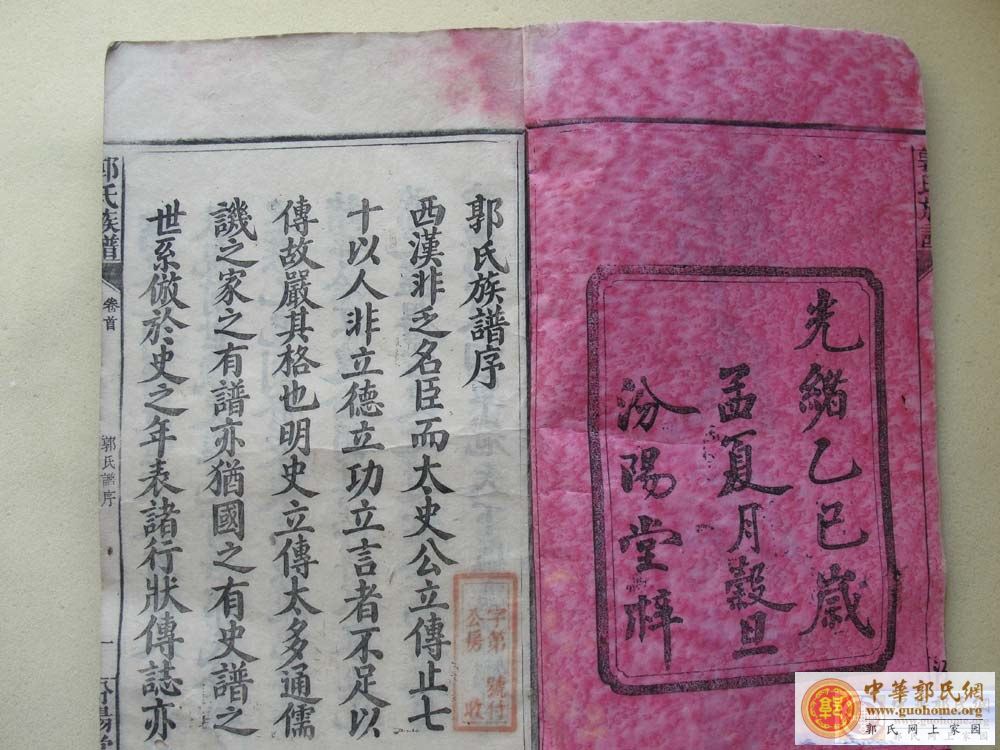 光緒乙巳歲
孟夏月穀旦
汾陽堂梓
郭氏族譜序
西漢非乏名臣而太史公立傳止七
十以人非立德立功立言者不足以
傳故嚴其格也明史立傳太多通儒
譏之家之有譜亦猶國之有史譜之
世系倣於史之年表諸行狀傳誌亦
字第 號付
公房 收
郭氏族譜
卷首
郭氏譜序
一
中華郭氏網
www.guohome.com
郭氏网上家园